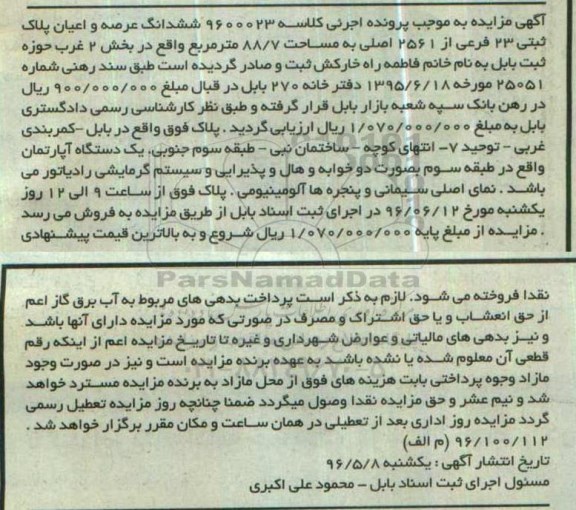 آگهی مزایده به موجب پرونده اجرئی کلاسه ۹۶۰۰۰۲۳ ششدانگ عرصه و اعیان پلاک
ثبتی ۲۳ فرعی از ۲۵۶۱ اصلی به مساحت ۸۸/۷ مترمربع واقع در بخش ۲ غرب حوزه
ثبت بابل به نام خانم فاطمه راه خارکش ثبت و صادر گردیده است طبق سند رهنی شماره
۲۵۰۵۱ مورخه ۱۳۹۵/۶/۱۸ دفتر خانه ۲۷۰ بابل در قبال مبلغ ۹۰۰/۰۰۰/۰۰۰ ریال
در رهن بانک سپه شعبه بازار بابل قرار گرفته و طبق نظر کارشناسی رسمی دادگستری
بابل به مبلغ ۱/۰۷۰/۰۰۰/۰۰۰ ریال ارزیابی گردید . پلاک فوق واقع در بابل -کمربندی
غربی - توحید ۷- انتهای کوچه - ساختمان نبی - طبقه سوم جنوبی. یک دستگاه آپارتمان
واقع در طبقه سوم بصورت دو خوابه و هال و پذیرایی و سیستم گرمایشی رادیاتور می
باشد . نمای اصلی سلیمانی و پنجره ها آلومینیومی . پلاک فوق از ساعت ۹ الی ۱۲ روز
یکشنبه مورخ ۹۶/۰۶/۱۲ در اجرای ثبت اسناد بابل از طریق مزایده به فروش می رسد
. مزایده از مبلغ پایه ۱/۰۷۰/۰۰۰/۰۰۰ ریال شروع و به بالاترین قیمت پیشنهادی
ParsNamadData
نقدا فروخته می شود. لازم به ذکر است پرداخت بدهی های مربوط به آب برق گاز اعم
از حق انعشاب و یا حق اشتراک و مصرف در صورتی که مورد مزایده دارای آنها باشد
و نیز بدهی های مالیاتی و عوارض شهرداری و غیره تا تاریخ مزایده اعم از اینکه رقم
قطعی آن معلوم شده یا نشده باشد به عهده برنده مزایده است و نیز در صورت وجود
مازاد وجوه پرداختی بابت هزینه های فوق از محل مازاد به برنده مزایده مسترد خواهد
شد و نیم عشر و حق مزایده نقدا وصول میگردد ضمنا چنانچه روز مزایده تعطیل رسمی
گردد مزایده روز اداری بعد از تعطیلی در همان ساعت و مکان مقرر برگزار خواهد شد .
۹۶/۱۰۰/۱۱۲ (م الف)
تاریخ انتشار آگهی : یکشنبه ۹۶/۵/۸
مسئول اجرای ثبت اسناد بابل - محمود علی اکبری